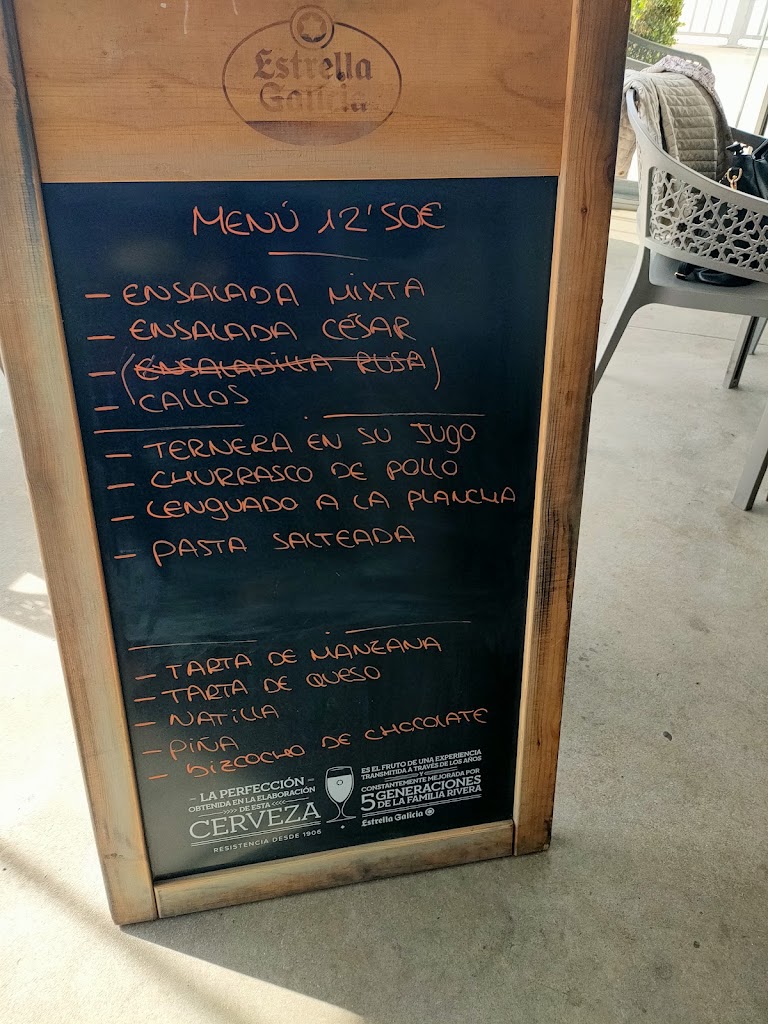 Estrella
Galicia
MENÚ 12'50€
- ENSALADA MIXTA
- ENSALADA CÉSAR
- (ENSALADILLA RUSA)
- CALLOS
- TERNERA EN SU JUGO
- CHURRASCO DE POLLO
- LENGUADO A LA PLANCHA
- PASTA SALTEADA
- TARTA DE MANZANA
- TARTA DE QUESO
- NATILLA
- PIÑA
- BIZCOCHO DE CHOCOLATE
- LA PERFECCIÓN -
OBTENIDA EN LA ELABORACIÓN
>>>> DE ESTA <<<<
CERVEZA
RESISTENCIA DESDE 1906
ES EL FRUTO DE UNA EXPERIENCIA
TRANSMITIDA A TRAVÉS DE LOS AÑOS
Y
CONSTANTEMENTE MEJORADA POR
5 GENERACIONES
DE LA FAMILIA RIVERA
Estrella Galicia